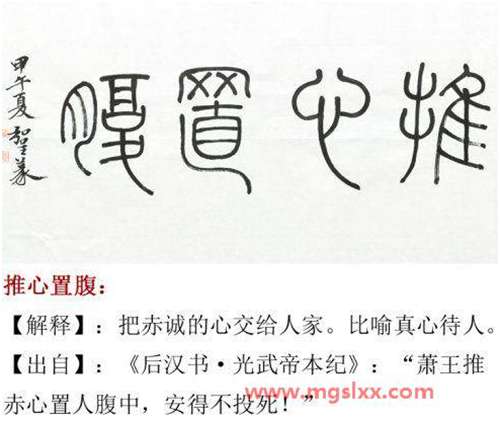 推心置腹
甲午夏
推心置腹：
【解释】：把赤诚的心交给人家。比喻真心待人。
【出自】：《后汉书·光武帝本纪》：“萧王推
赤心置人腹中，安得不投死！”
www.mgslxx.com